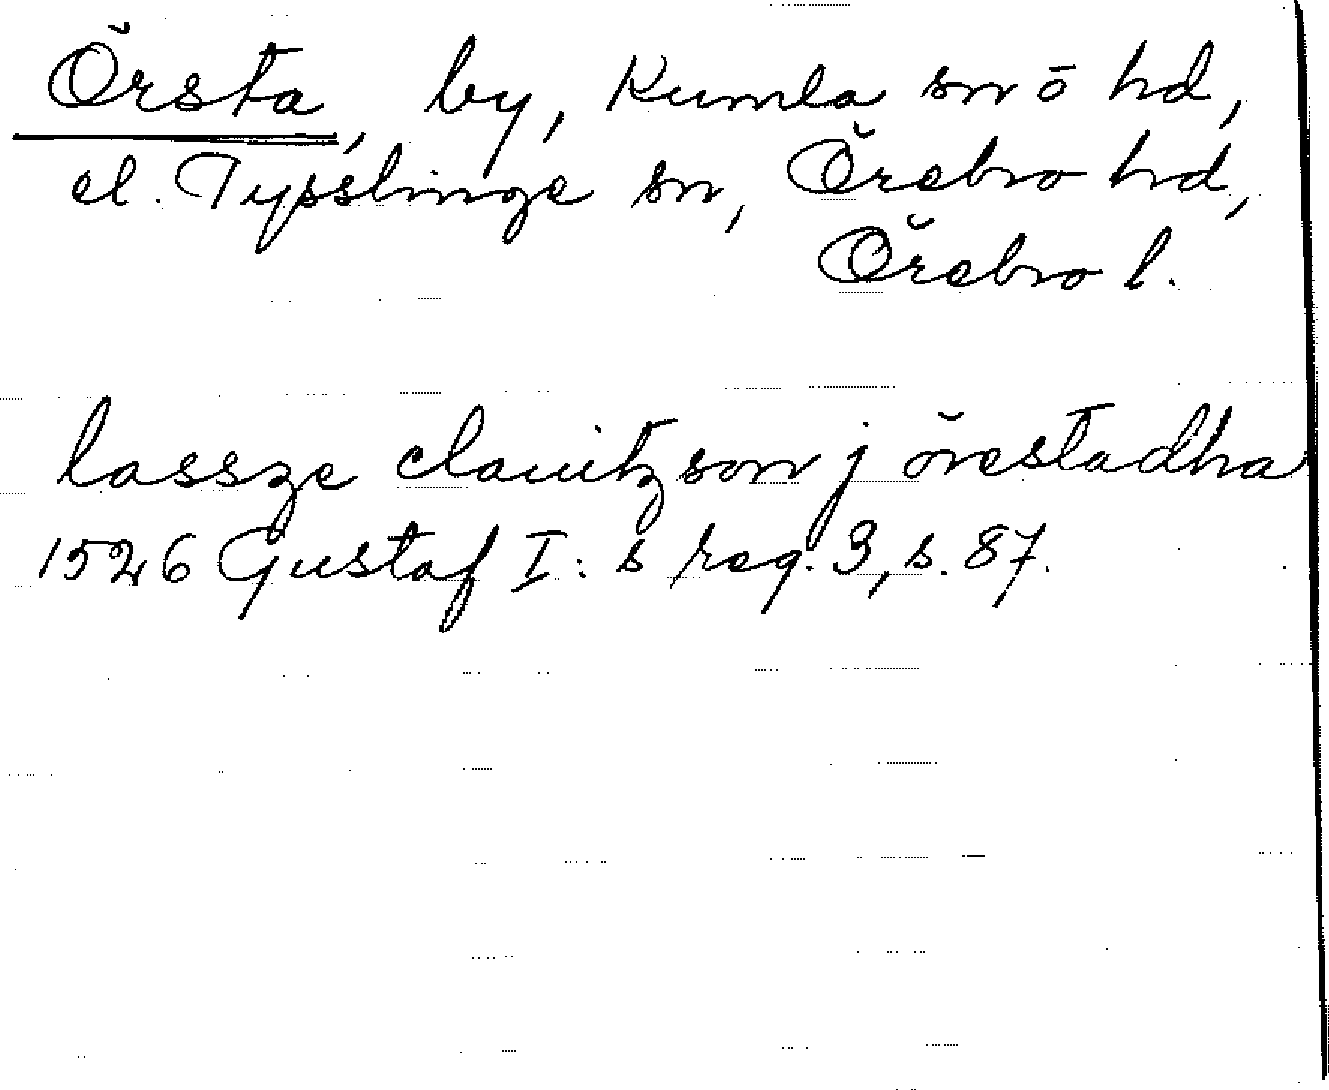 Örsta, by, Kumla sn ō hd,
el. Tysslinge sn, Örebro hd,
Örebro l.
lassze clauitzson j örestadha
1526 Gustaf I: s reg. 3, s. 87.